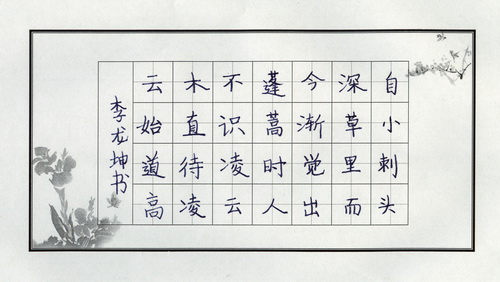 自小刺头
深草里而
今渐觉出
蓬蒿时人
不识凌云
木直待凌
云始道高
李龙坤书